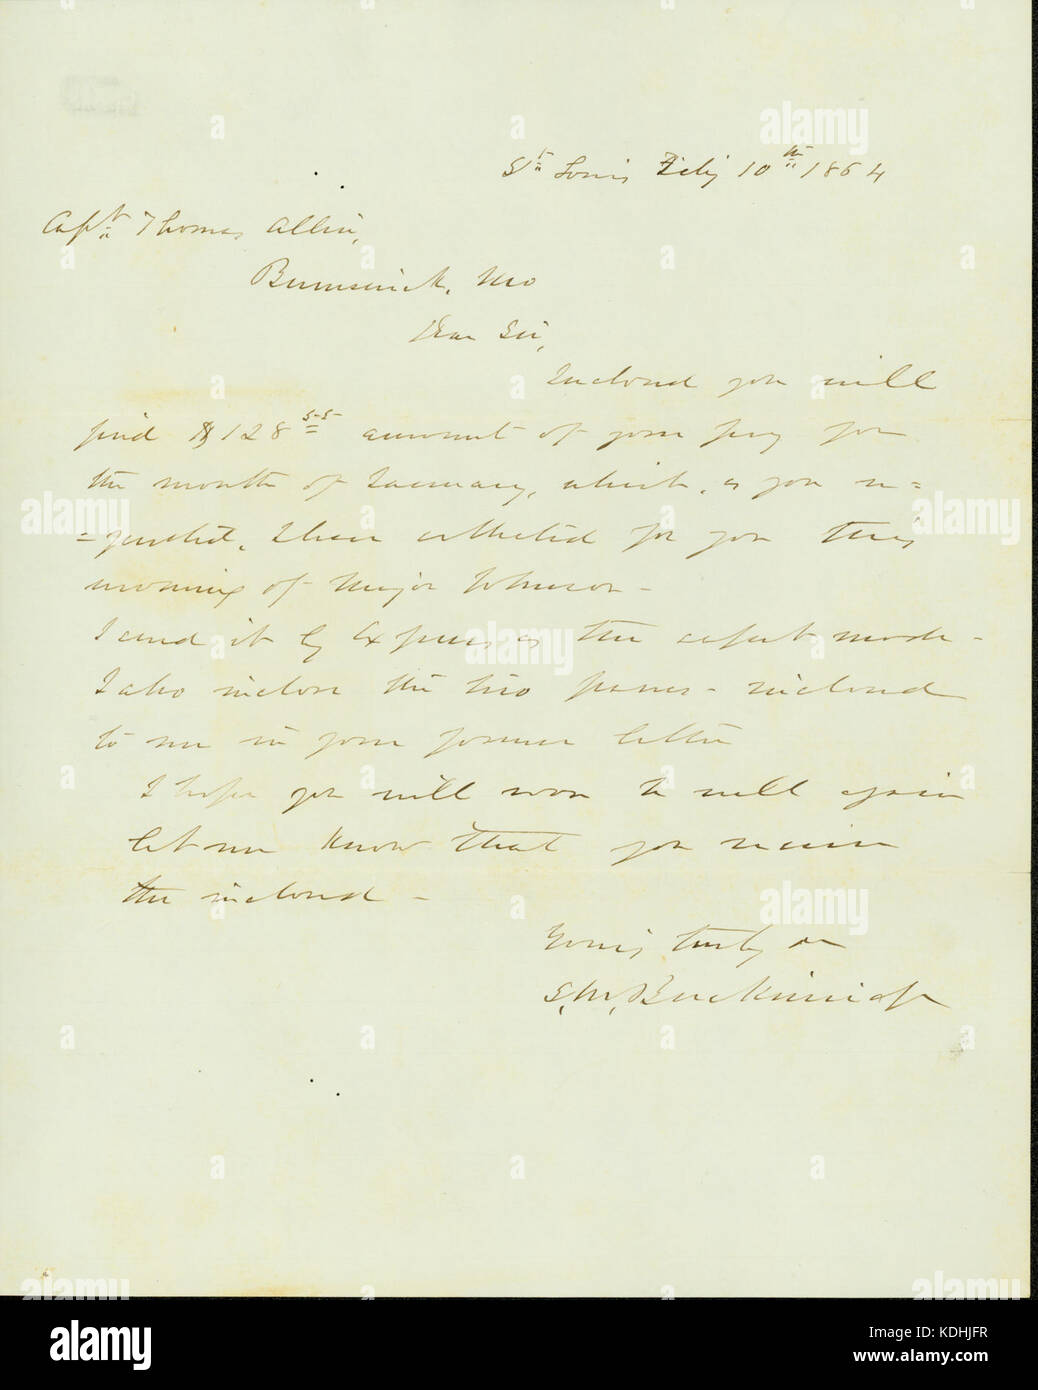 St. Louis Feby 10th 1864
Capt. Thomas Allin,
Brunswick, Mo
Dear Sir,
Inclosed you will
find $128 55 amount of your pay for
the month of January, which, as you re=
=quested, I have collected for you this
morning of Major Johnson -
I send it by Express as the safest mode -
I also inclose the two papers - inclosed
to me in your former letter
I hope you will soon be well again
let me know that you receive
the inclosed -
Yours truly
S. M. Breckinridge
alamy
Image ID: KDHJFR
www.alamy.com